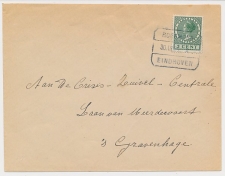 EINDHOVEN
5 CENT
Aan De Crisis-Zuivel-Centrale
Laan van Meerdervoort
's Gravenhage